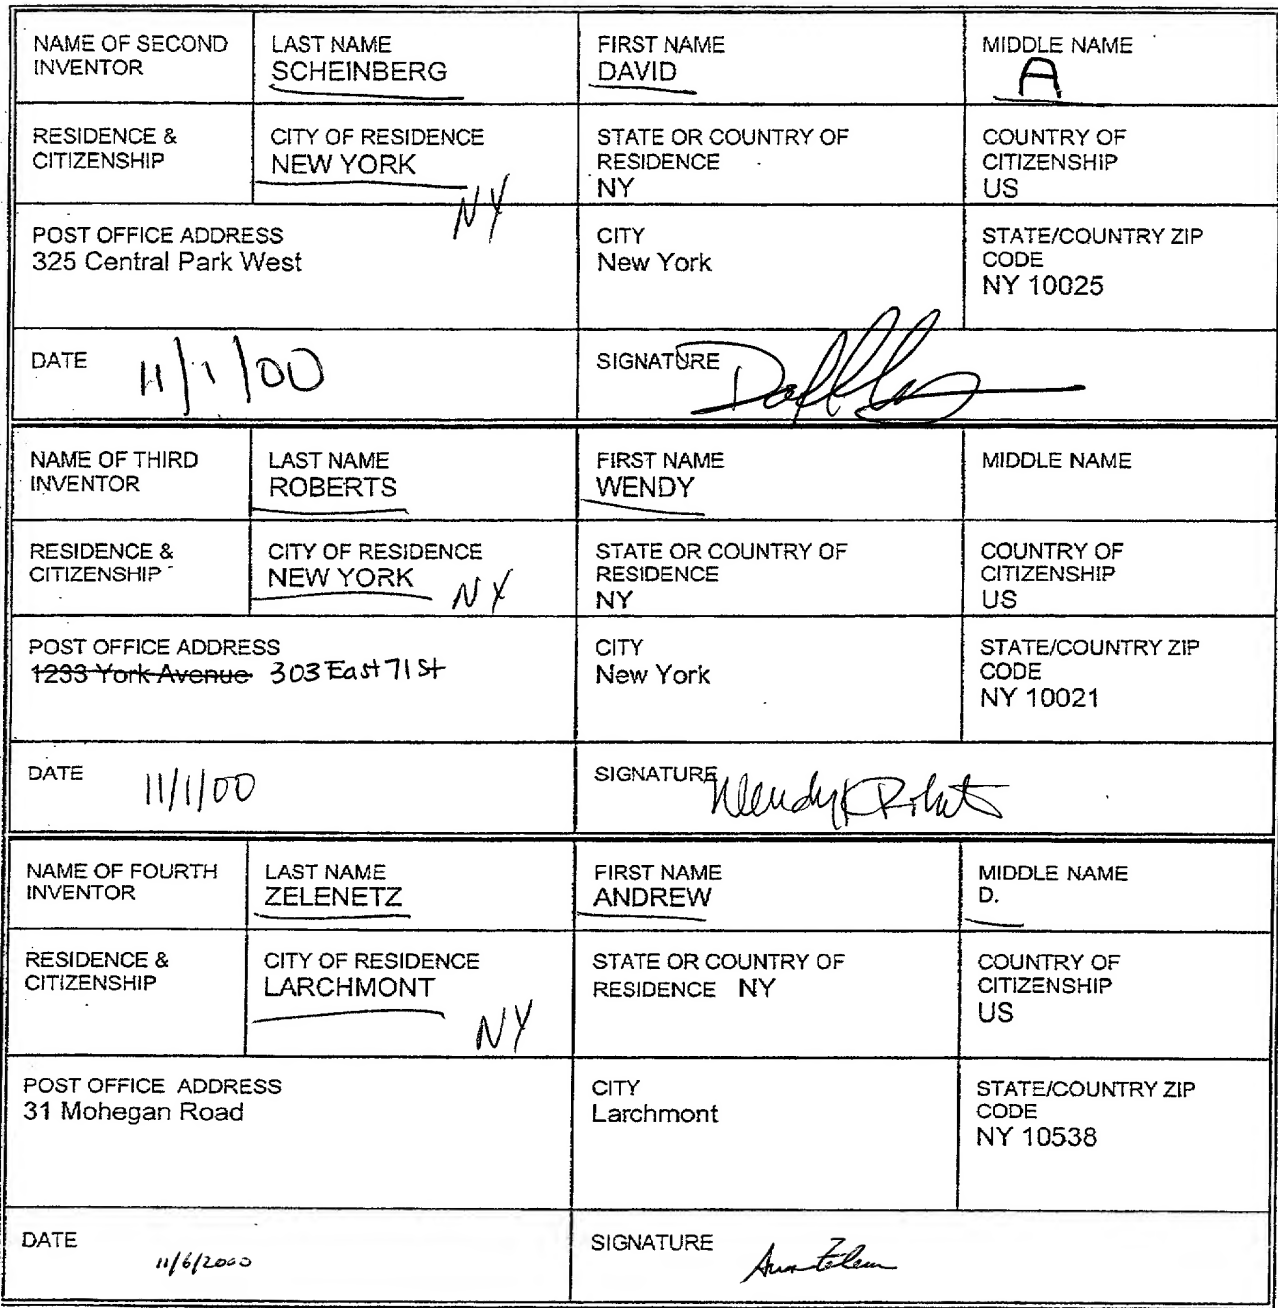 NAME OF SECOND INVENTOR
LAST NAME
SCHEINBERG
FIRST NAME
DAVID
MIDDLE NAME
A
RESIDENCE &
CITIZENSHIP
CITY OF RESIDENCE
NEW YORK
NY
STATE OR COUNTRY OF
RESIDENCE
NY
COUNTRY OF
CITIZENSHIP
US
POST OFFICE ADDRESS
325 Central Park West
CITY
New York
STATE/COUNTRY ZIP
CODE
NY 10025
DATE 11/1/00
SIGNATURE
NAME OF THIRD
INVENTOR
LAST NAME
ROBERTS
FIRST NAME
WENDY
MIDDLE NAME
RESIDENCE &
CITIZENSHIP
CITY OF RESIDENCE
NEW YORK NY
STATE OR COUNTRY OF
RESIDENCE
NY
COUNTRY OF
CITIZENSHIP
US
POST OFFICE ADDRESS
1233 York Avenue 303 East 71 St
CITY
New York
STATE/COUNTRY ZIP
CODE
NY 10021
DATE 11/1/00
SIGNATURE Wendy K Roberts
NAME OF FOURTH
INVENTOR
LAST NAME
ZELENETZ
FIRST NAME
ANDREW
MIDDLE NAME
D.
RESIDENCE &
CITIZENSHIP
CITY OF RESIDENCE
LARCHMONT
NY
STATE OR COUNTRY OF
RESIDENCE NY
COUNTRY OF
CITIZENSHIP
US
POST OFFICE ADDRESS
31 Mohegan Road
CITY
Larchmont
STATE/COUNTRY ZIP
CODE
NY 10538
DATE 11/6/2000
SIGNATURE